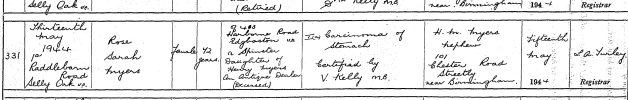 Selly Oak U.D.
(Retired)
near Birmingham
1944
Registrar
331
Thirteenth
May
1944
Raddlebarn
Road
Selly Oak U.D.
Rose
Sarah
Myers
Female
42
years.
Harborne Road
Edgbaston U.D.
a Spinster
Daughter of
Henry Myers
An Antique Dealer
(Deceased)
Carcinoma of
Stomach
Certified by
V. Kelly M.B.
H. M. Myers
Nephew
101
Chester Road
Streetly
near Birmingham.
Fifteenth
May
1944
Registrar